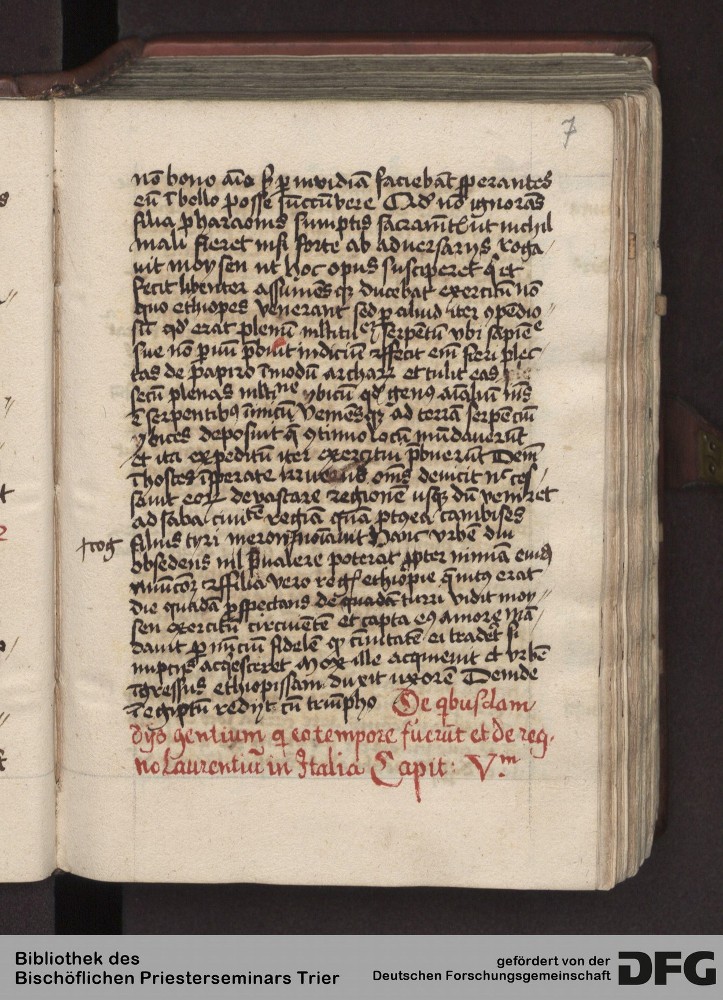 7
nō bono aīo sꝫ ꝑ invidiā faciebāt sperantes
eū ī bello posse succūbere Qd' nō ignorās
filia pharaonis sumptis sacramt ut nichil
mali fieret nisi forte ab adversarijs roga//
uit moysen ut hoc opus susciperet qͥ et
fecit libenter assumēsqꝫ ducebat exercitū nō
quo ethiopes venerant sed ꝑ aliud iter 9pēdio//
sū qd' erat plenū serpētū vbi sapiē
sue nō ꝑuū p̄buit indiciū effecit em̄ fieri plec//
tas de papiro ī modū archarꝝ et tulit eas
secū plenas ybicū qd' genus aīaliū
ē serpentibꝰ inimicū veniēsqꝫ ad terrā serpētiū
ybices deposuit q̄ 9tinuo locū mūdaverūt
et ita expeditū iter exercitui p̄buerūt Deīn
ī hostes īsperate irruēs oms devicit nͨ ces//
sauit eoꝝ devastare regionē usqꝫ dū veniret
ad saba civitē regiā quā ptꝫea cambises
filius tyri meron noīauit Hanc vrbē diu
obsedens nil p̄valere poterat ꝓpter nimiā eiꝰ
Filia vero regꝭ ethiopie q̄ intꝰ erat
die quadā ꝓspectans de quadā turri vidit moy//
sen exercitū circūeūtē et capta eiꝰ amore mā//
davit ꝑ nūciū fidelē qꝫ civitatē ei tradet si
nuptijs acqesceret Mox ille acquieuit et vrbē
īgressus ethiopissam duxit uxorē Deinde
ī egiptū redijt cū triūpho De qbusdam
dijs gentium qͥ eo tempore fuerūt et de reg//
no Laurentiū in Italia Capit: Vm
Bibliothek des
Bischöflichen Priesterseminars Trier
gefördert von der
Deutschen Forschungsgemeinschaft
DFG